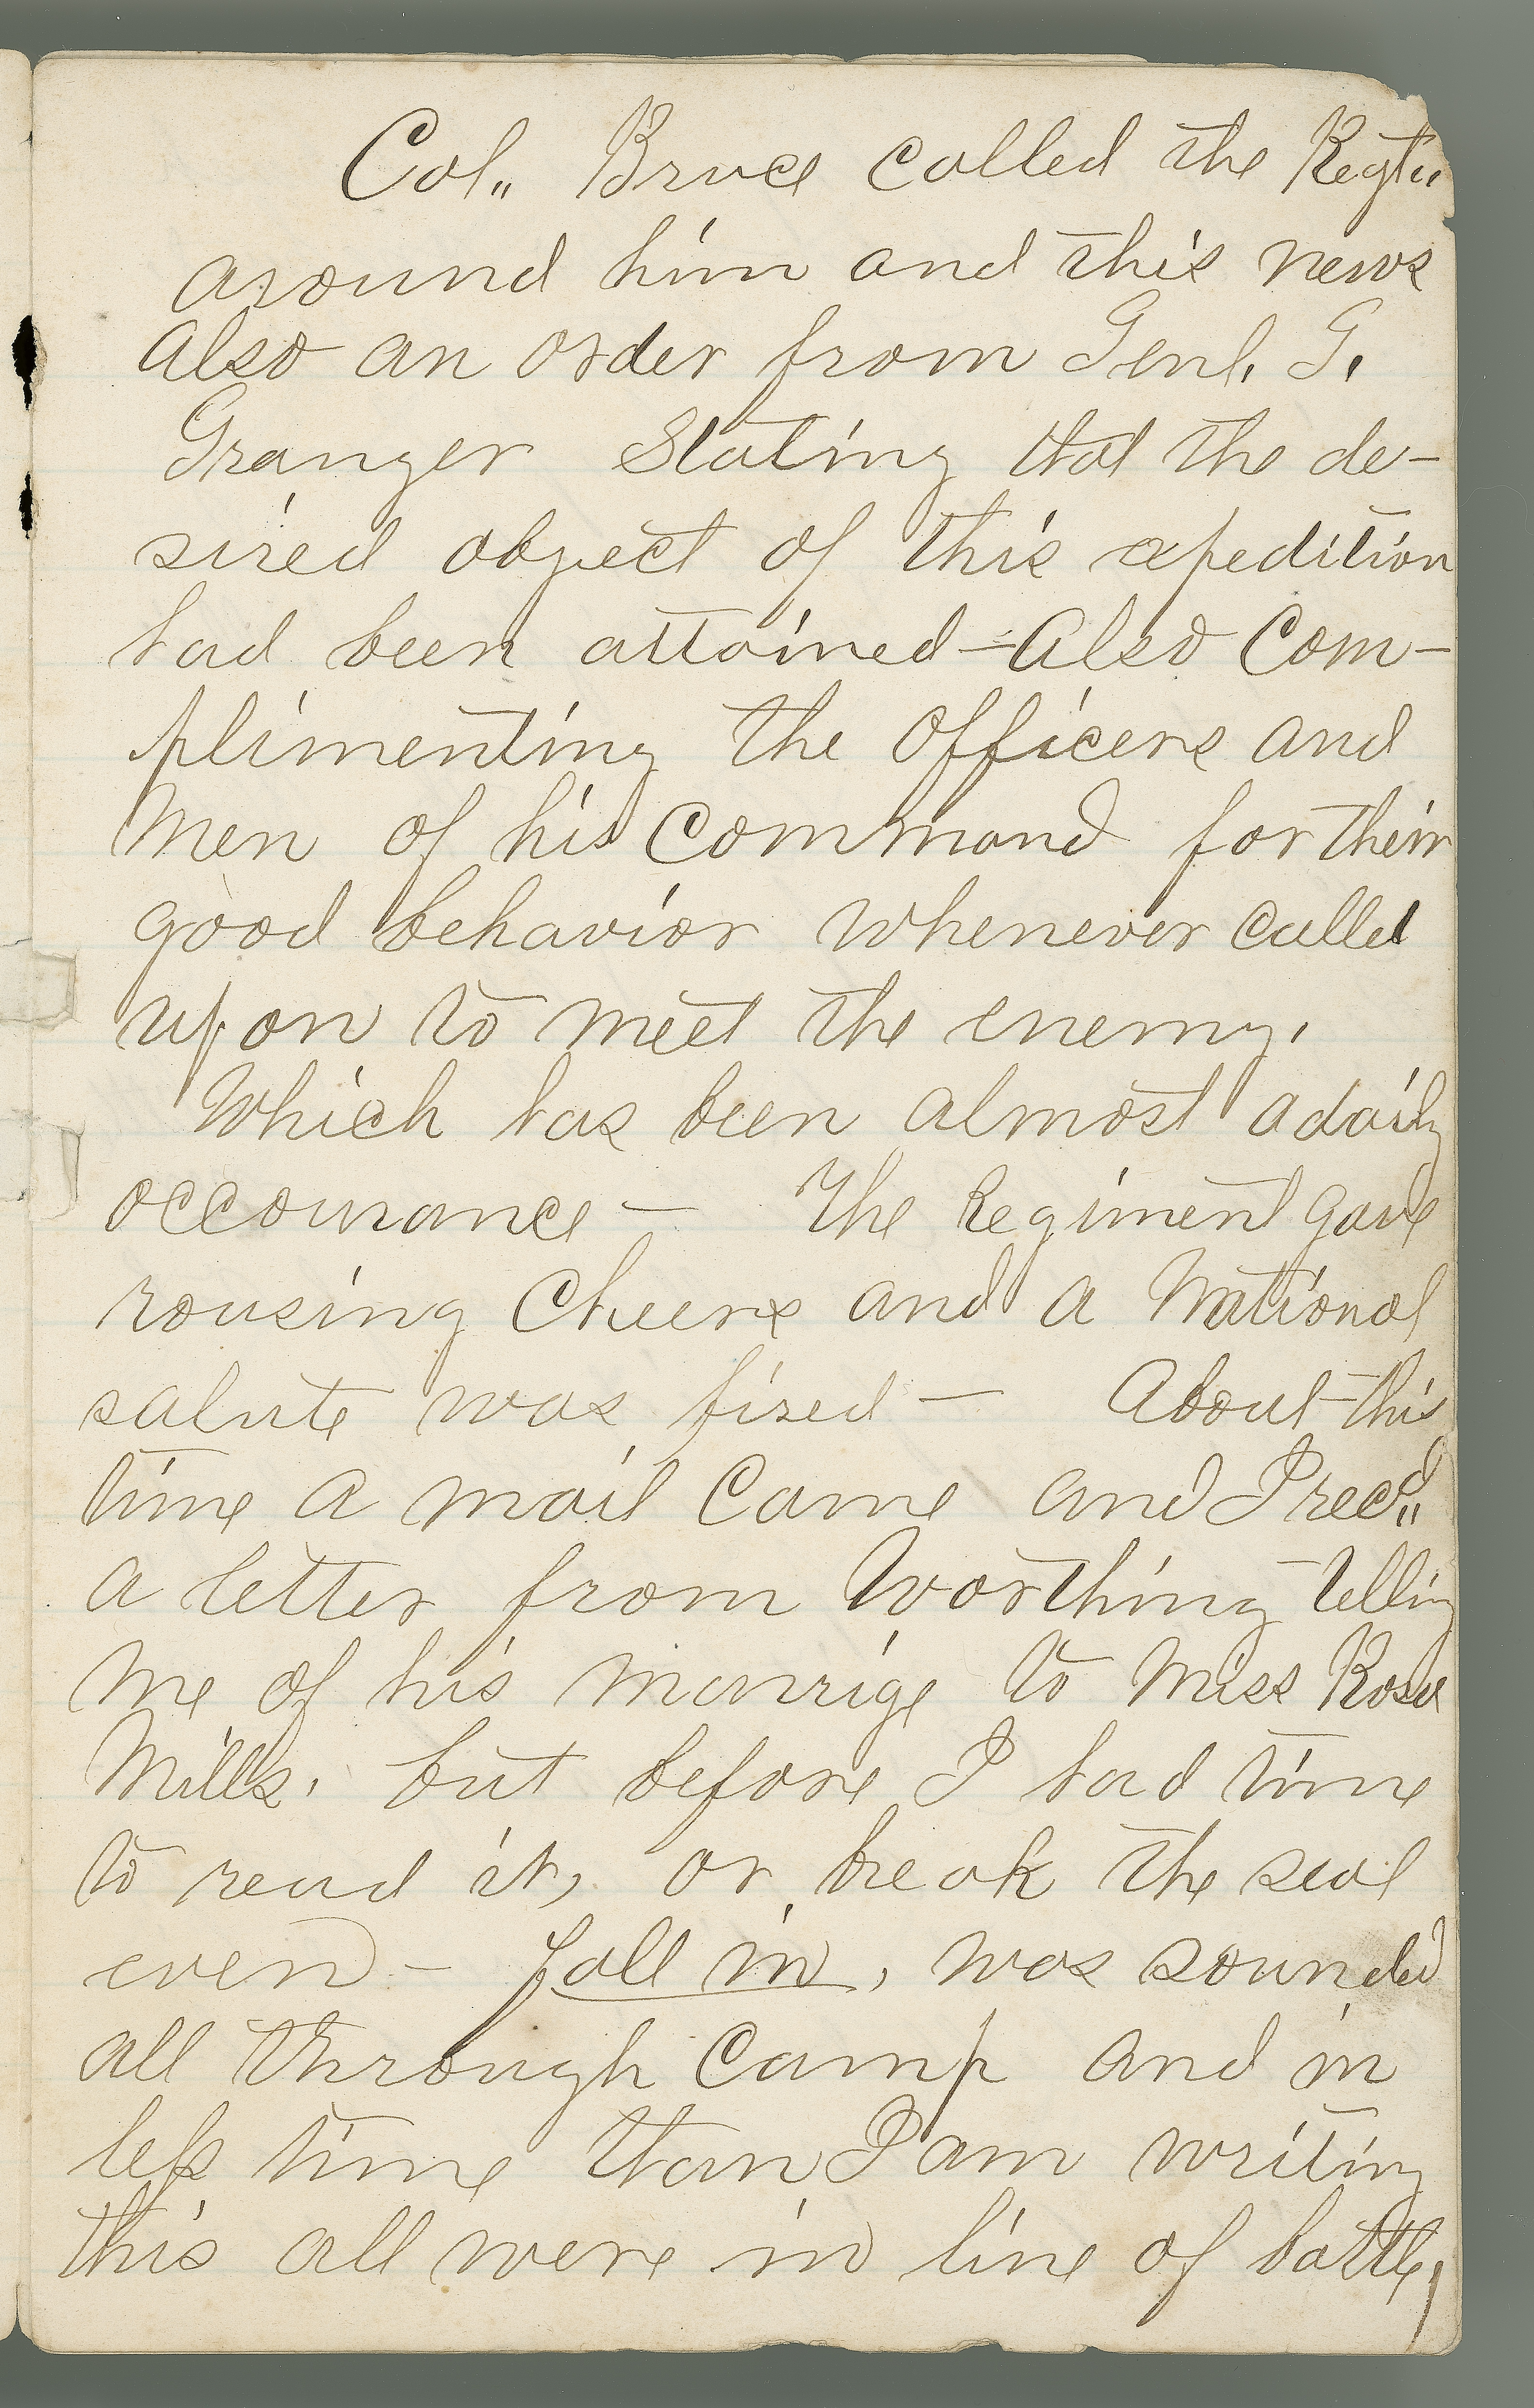 Col,, Bruce called the Regt,,
around him and this news
also an order from Genl. G.
Granger Stating that the de-
sired object of this expedition
had been attained - Also Com-
plimenting the Officers and
Men of his Command for their
good behavior whenever called
upon to meet the enemy.
Which has been almost a daily
occourance - The Regiment gave
rousing Cheers and a National
salute was fired - About this
time a mail Came and I recd,,
a letter from Worthing telling
me of his marrige to Miss Rose
Mills. but before I had time
to read it, or break the seal
even - fall in, was sounded
all through Camp and in
less time than I am writing
this all were in line of battle,